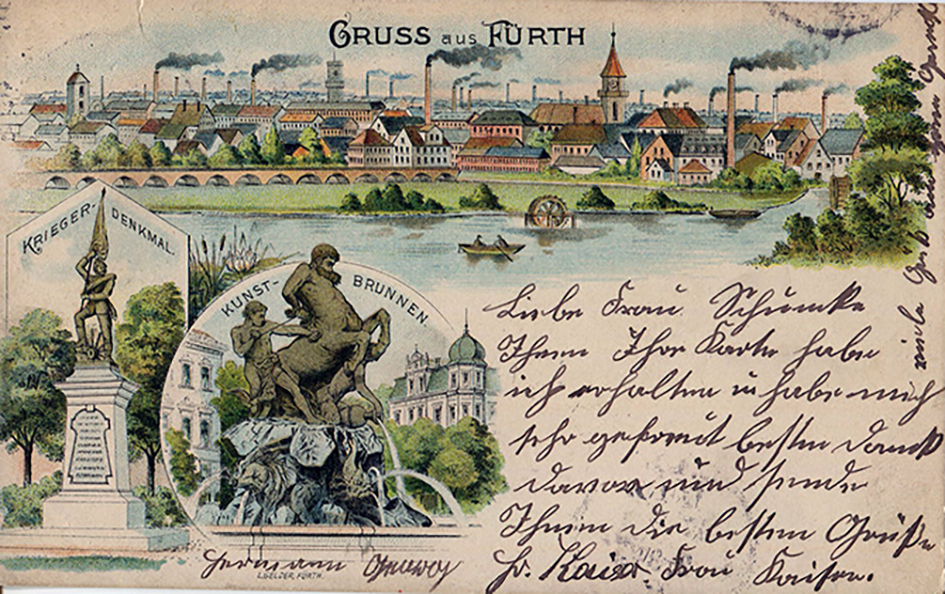 GRUSS aus FÜRTH
KRIEGER-DENKMAL.
KUNST-BRUNNEN.
Liebe Frau Schumke
Ihnen Ihre Karte habe
ich erhalten u habe mich
sehr gefreut besten Dank
davor und sende
Ihnen die besten Grüße
Hr. Kaiser. Frau Kaiser.
Hermann
L. GELDER, FÜRTH.
viele